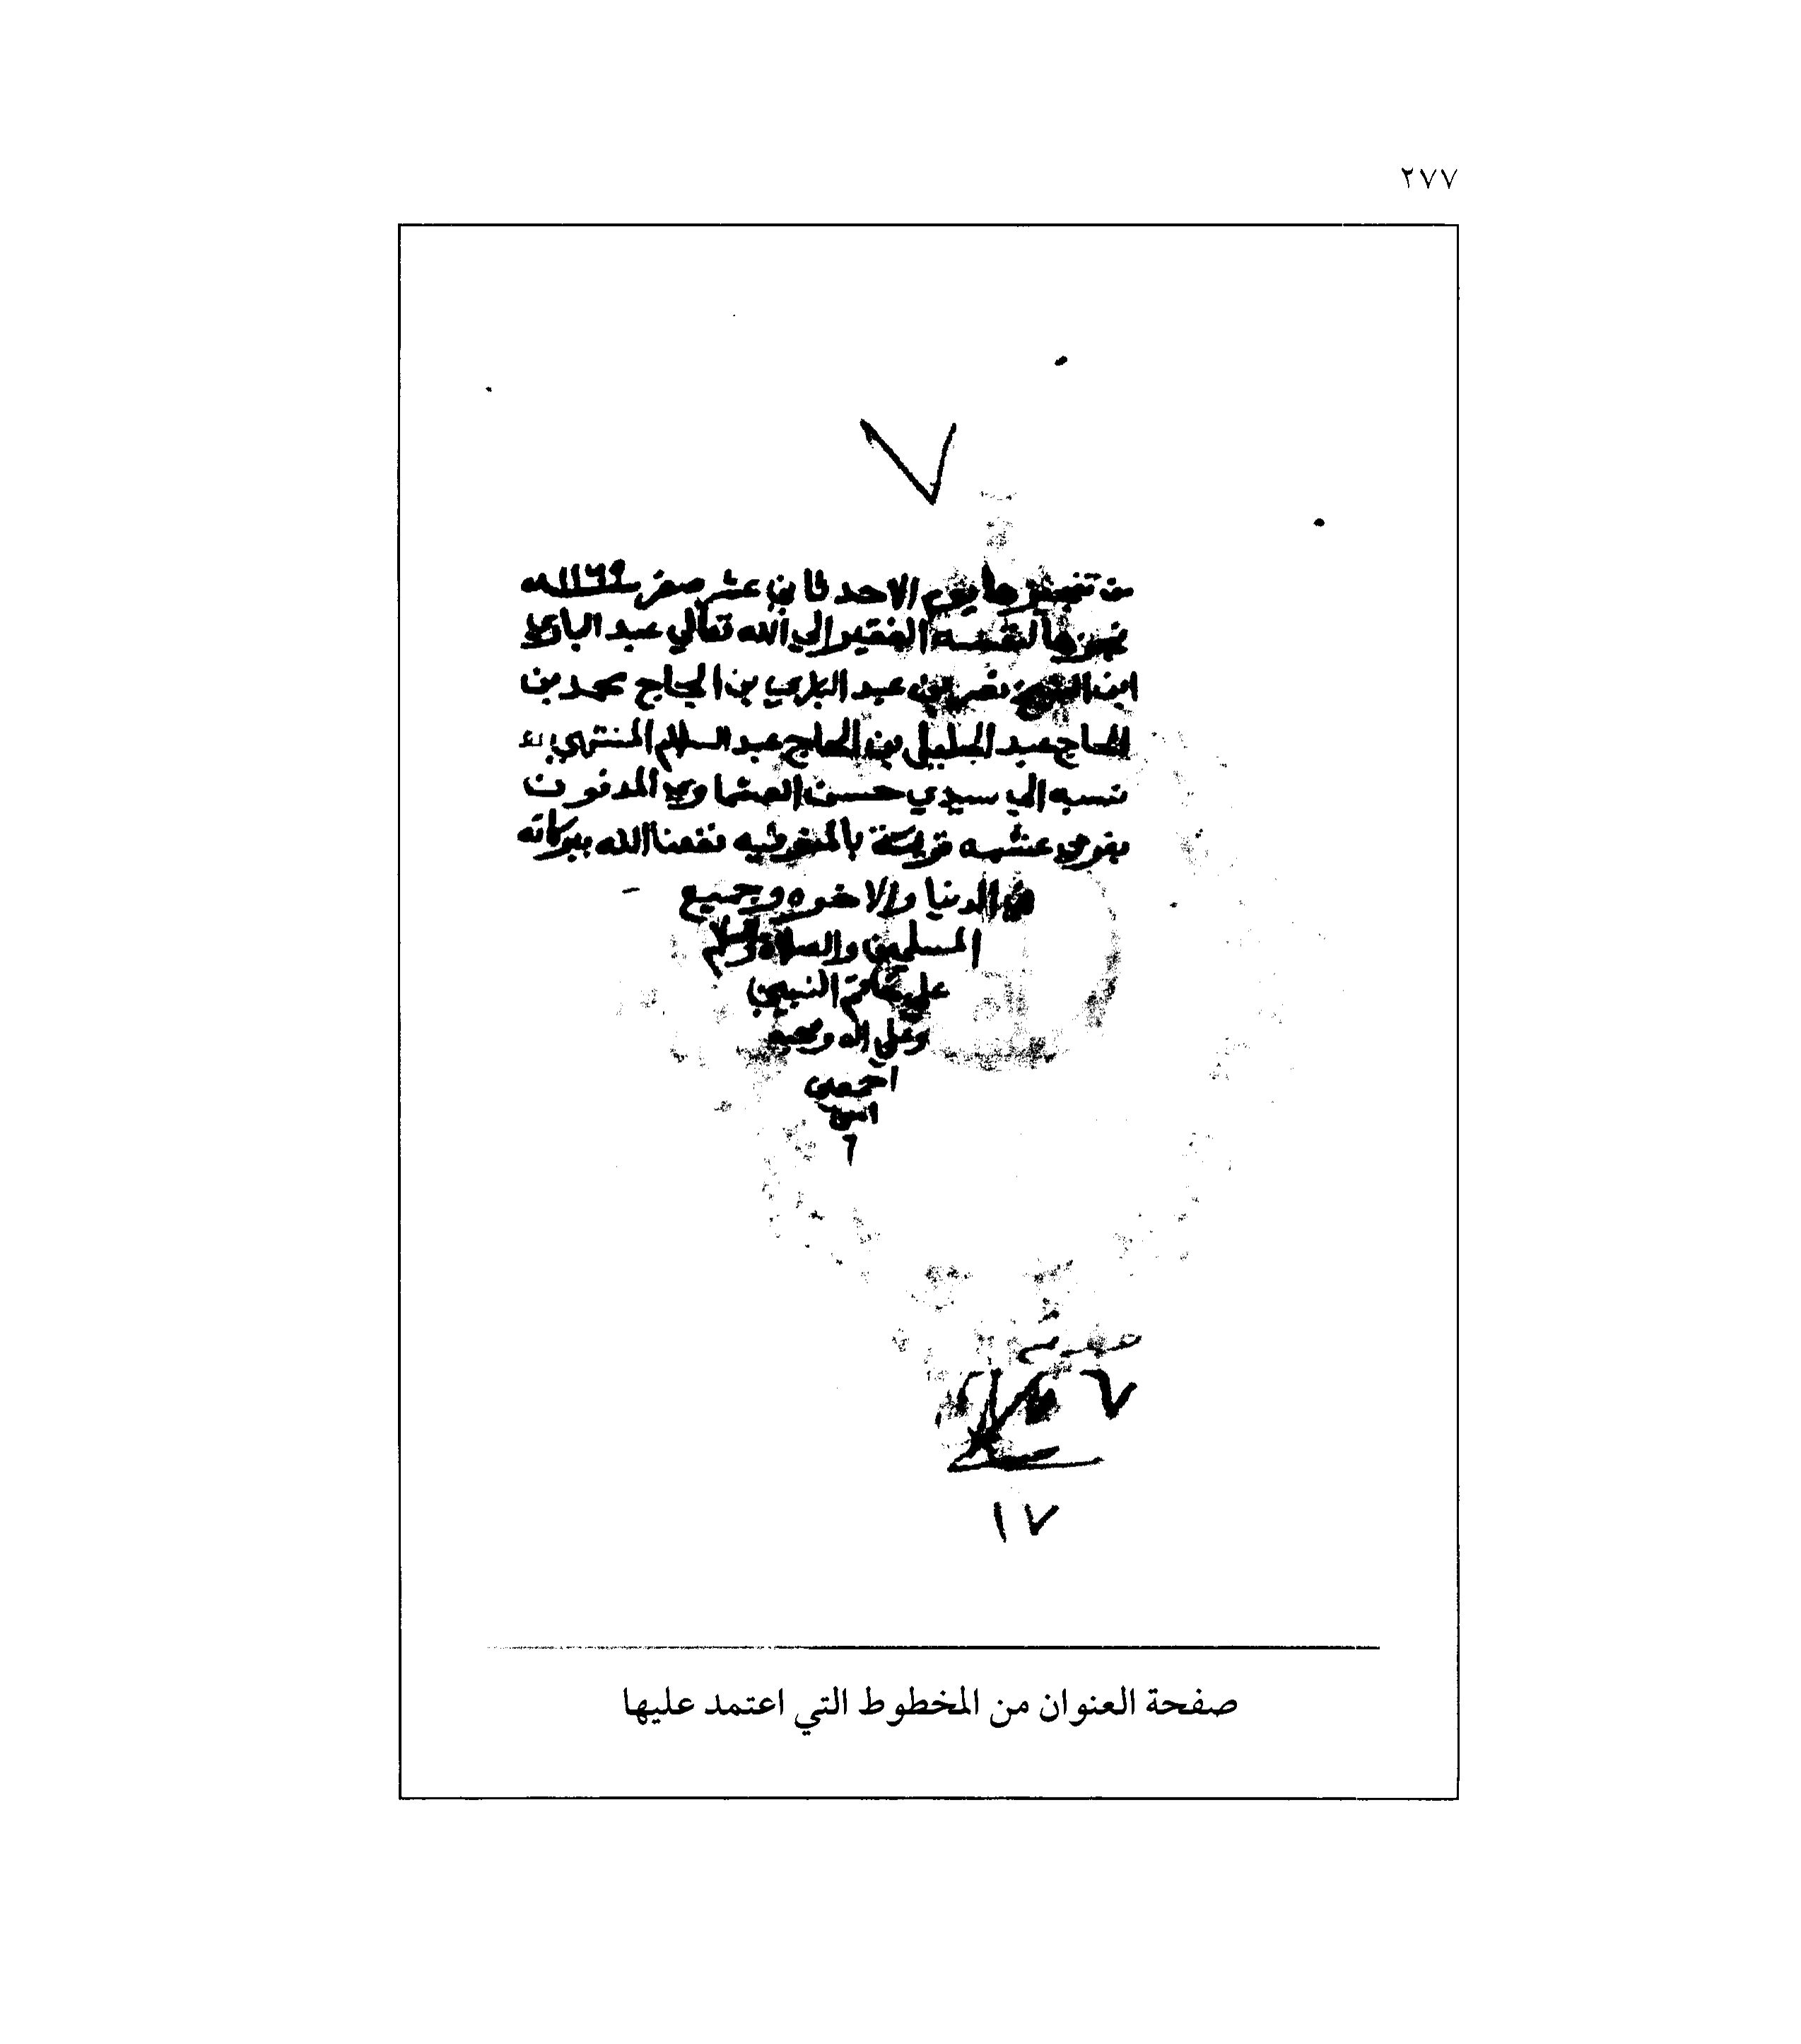 ٢٧٧
٧
من تنجيزها يوم الاحد ثاني عشر صفر سنة ١١٦٩
نجزها لنفسه الفقير الي الله تعالي عبد الباري
ابن الشيخ نصر بن عبد الباري بن الحاج محمد بن
الحاج عبد الجليل بن الحاج عبد السلام المنتهي
نسبه الي سيدي حسن العشماوي المدفون
بقرمي عشيه قريبة بالمنوفيه نفعنا الله ببركاته
في الدنيا والاخره وجميع
المسلمين والصلاة والسلام
علي خاتم النبيين
وعلي اله وصحبه
اجمعين
امين
٦
١٧
صفحة العنوان من المخطوط التي اعتمد عليها